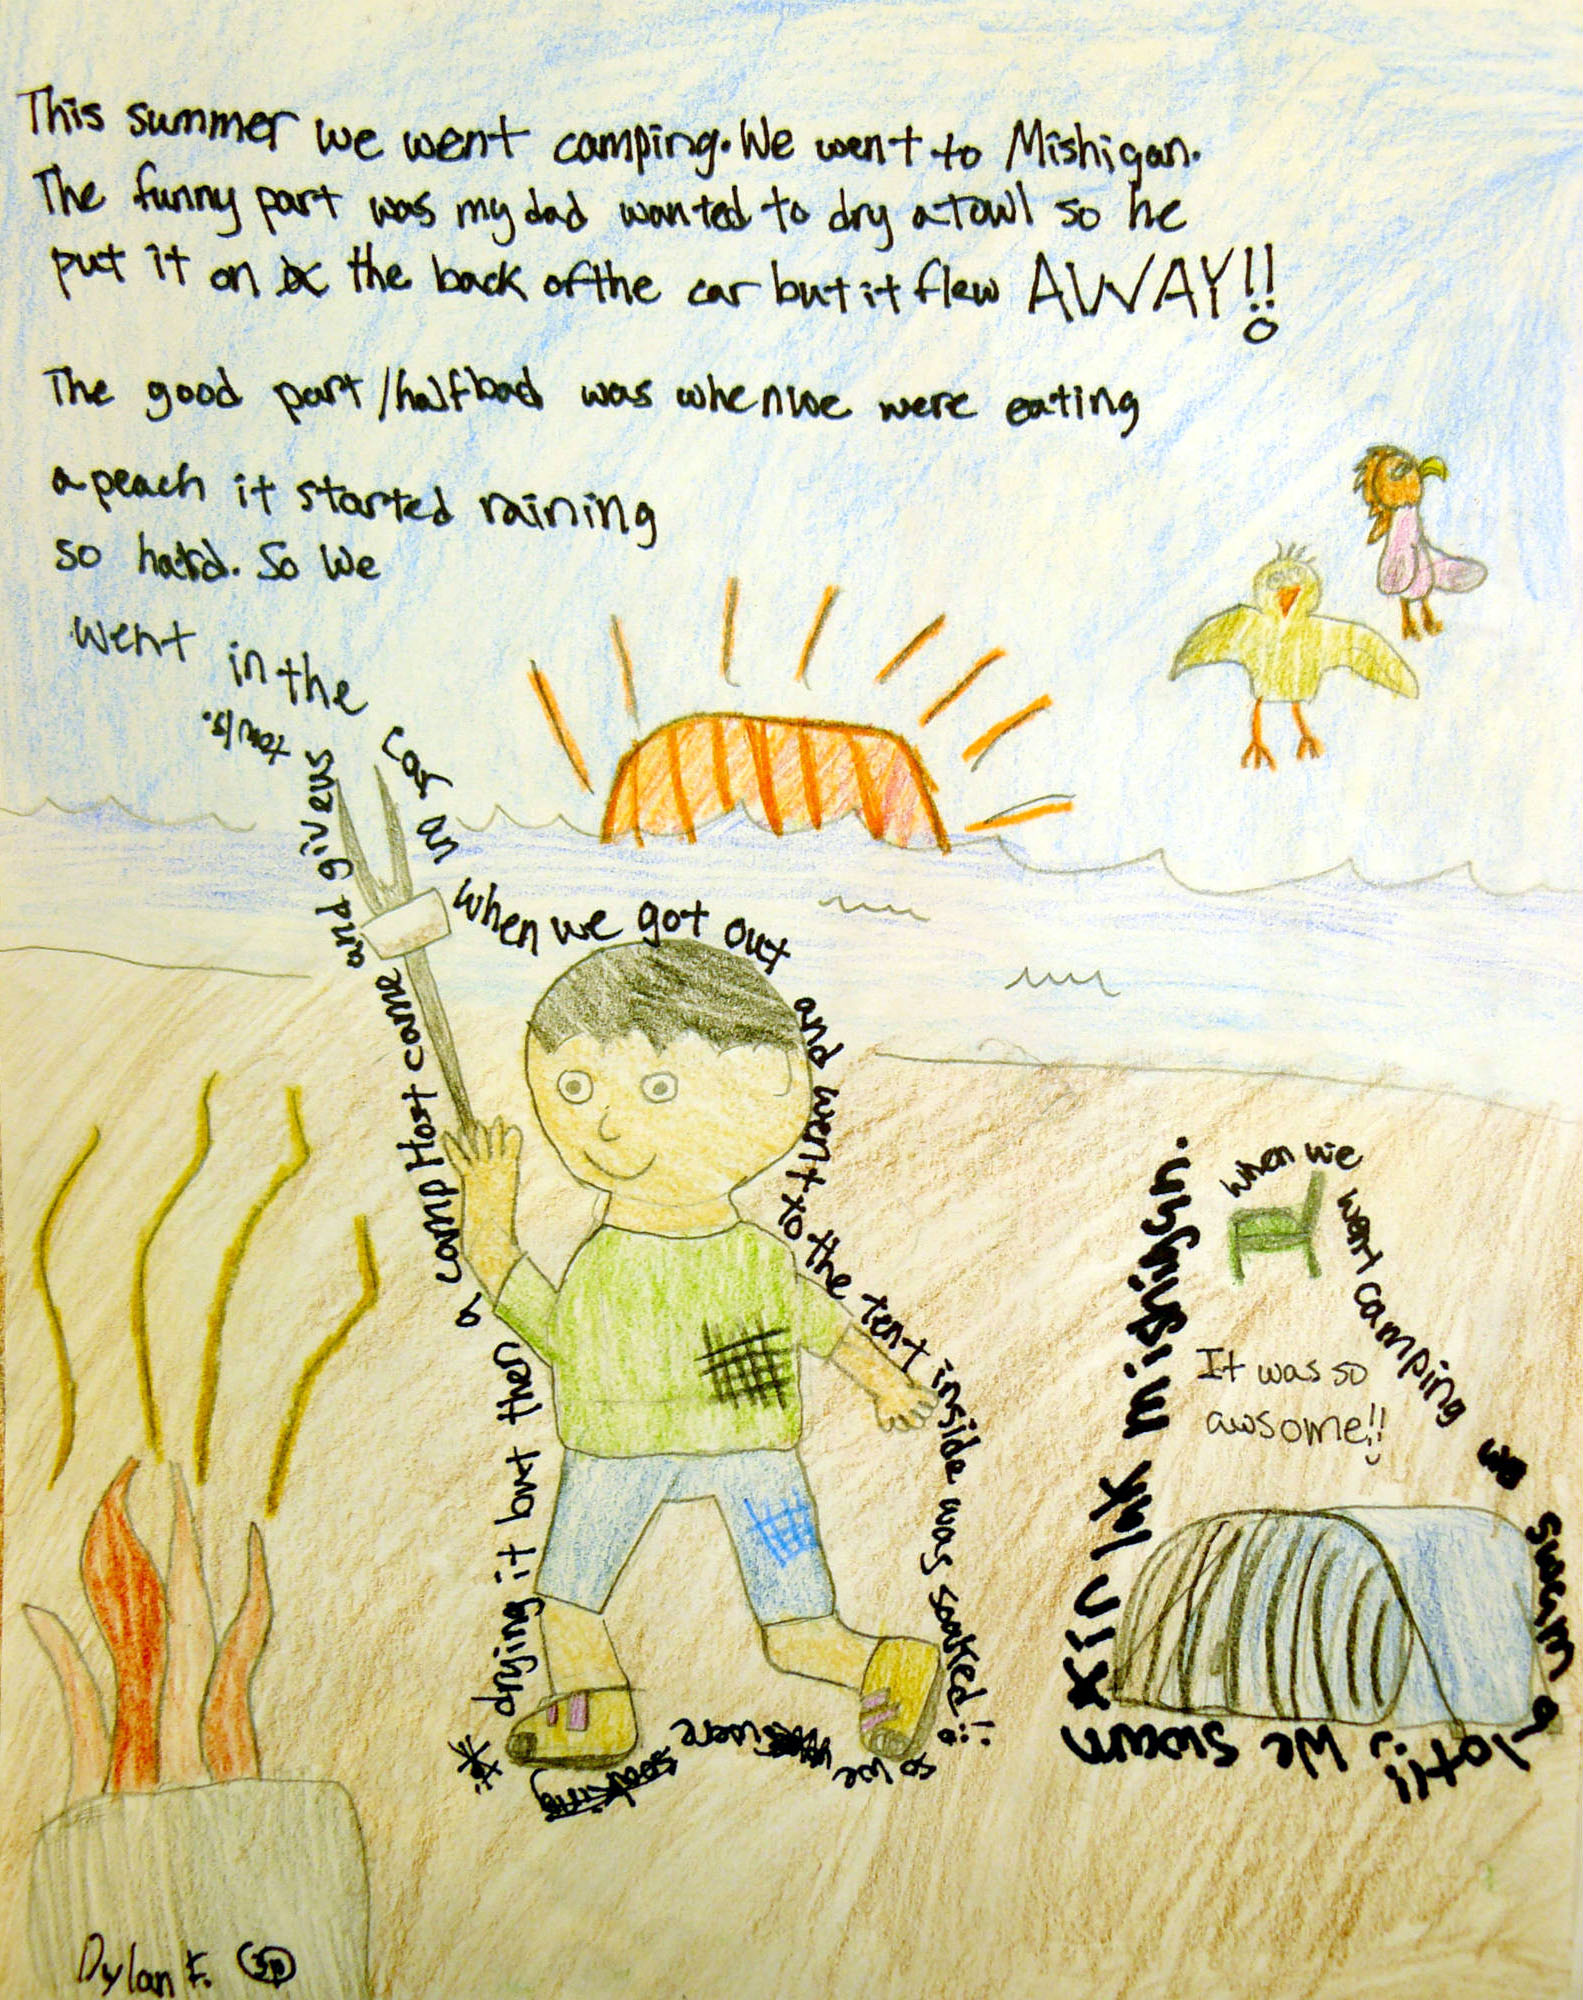 This summer we went camping. We went to Mishigan.
The funny part was my dad wanted to dry a towl so he
put it on the back of the car but it flew AWAY!!
The good part/half bad was when we were eating
a peach it started raining
so hard. So we
went in the
car an
when we got out
and went to the tent inside was soaked!!
so we were
drying it but then
a camp Host came
and give us
towls.
when we
went camping
we
swam
a lot!! We swam
in lak
mishigin.
It was so
awsome!!
Dylan F.